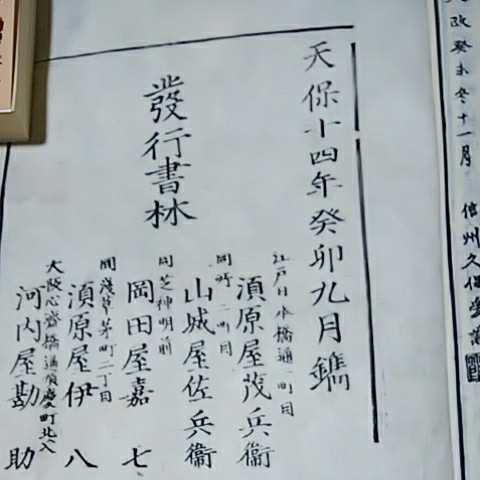 文政癸未冬十一月 信州久保
天保十四年癸卯九月鐫
發行書林
江戸日本橋通一町目
須原屋茂兵衞
同町二町目
山城屋佐兵衞
同芝神明前
岡田屋嘉七
同淺草茅町二丁目
須原屋伊八
大阪心齋橋通順慶町北入
河内屋勘助